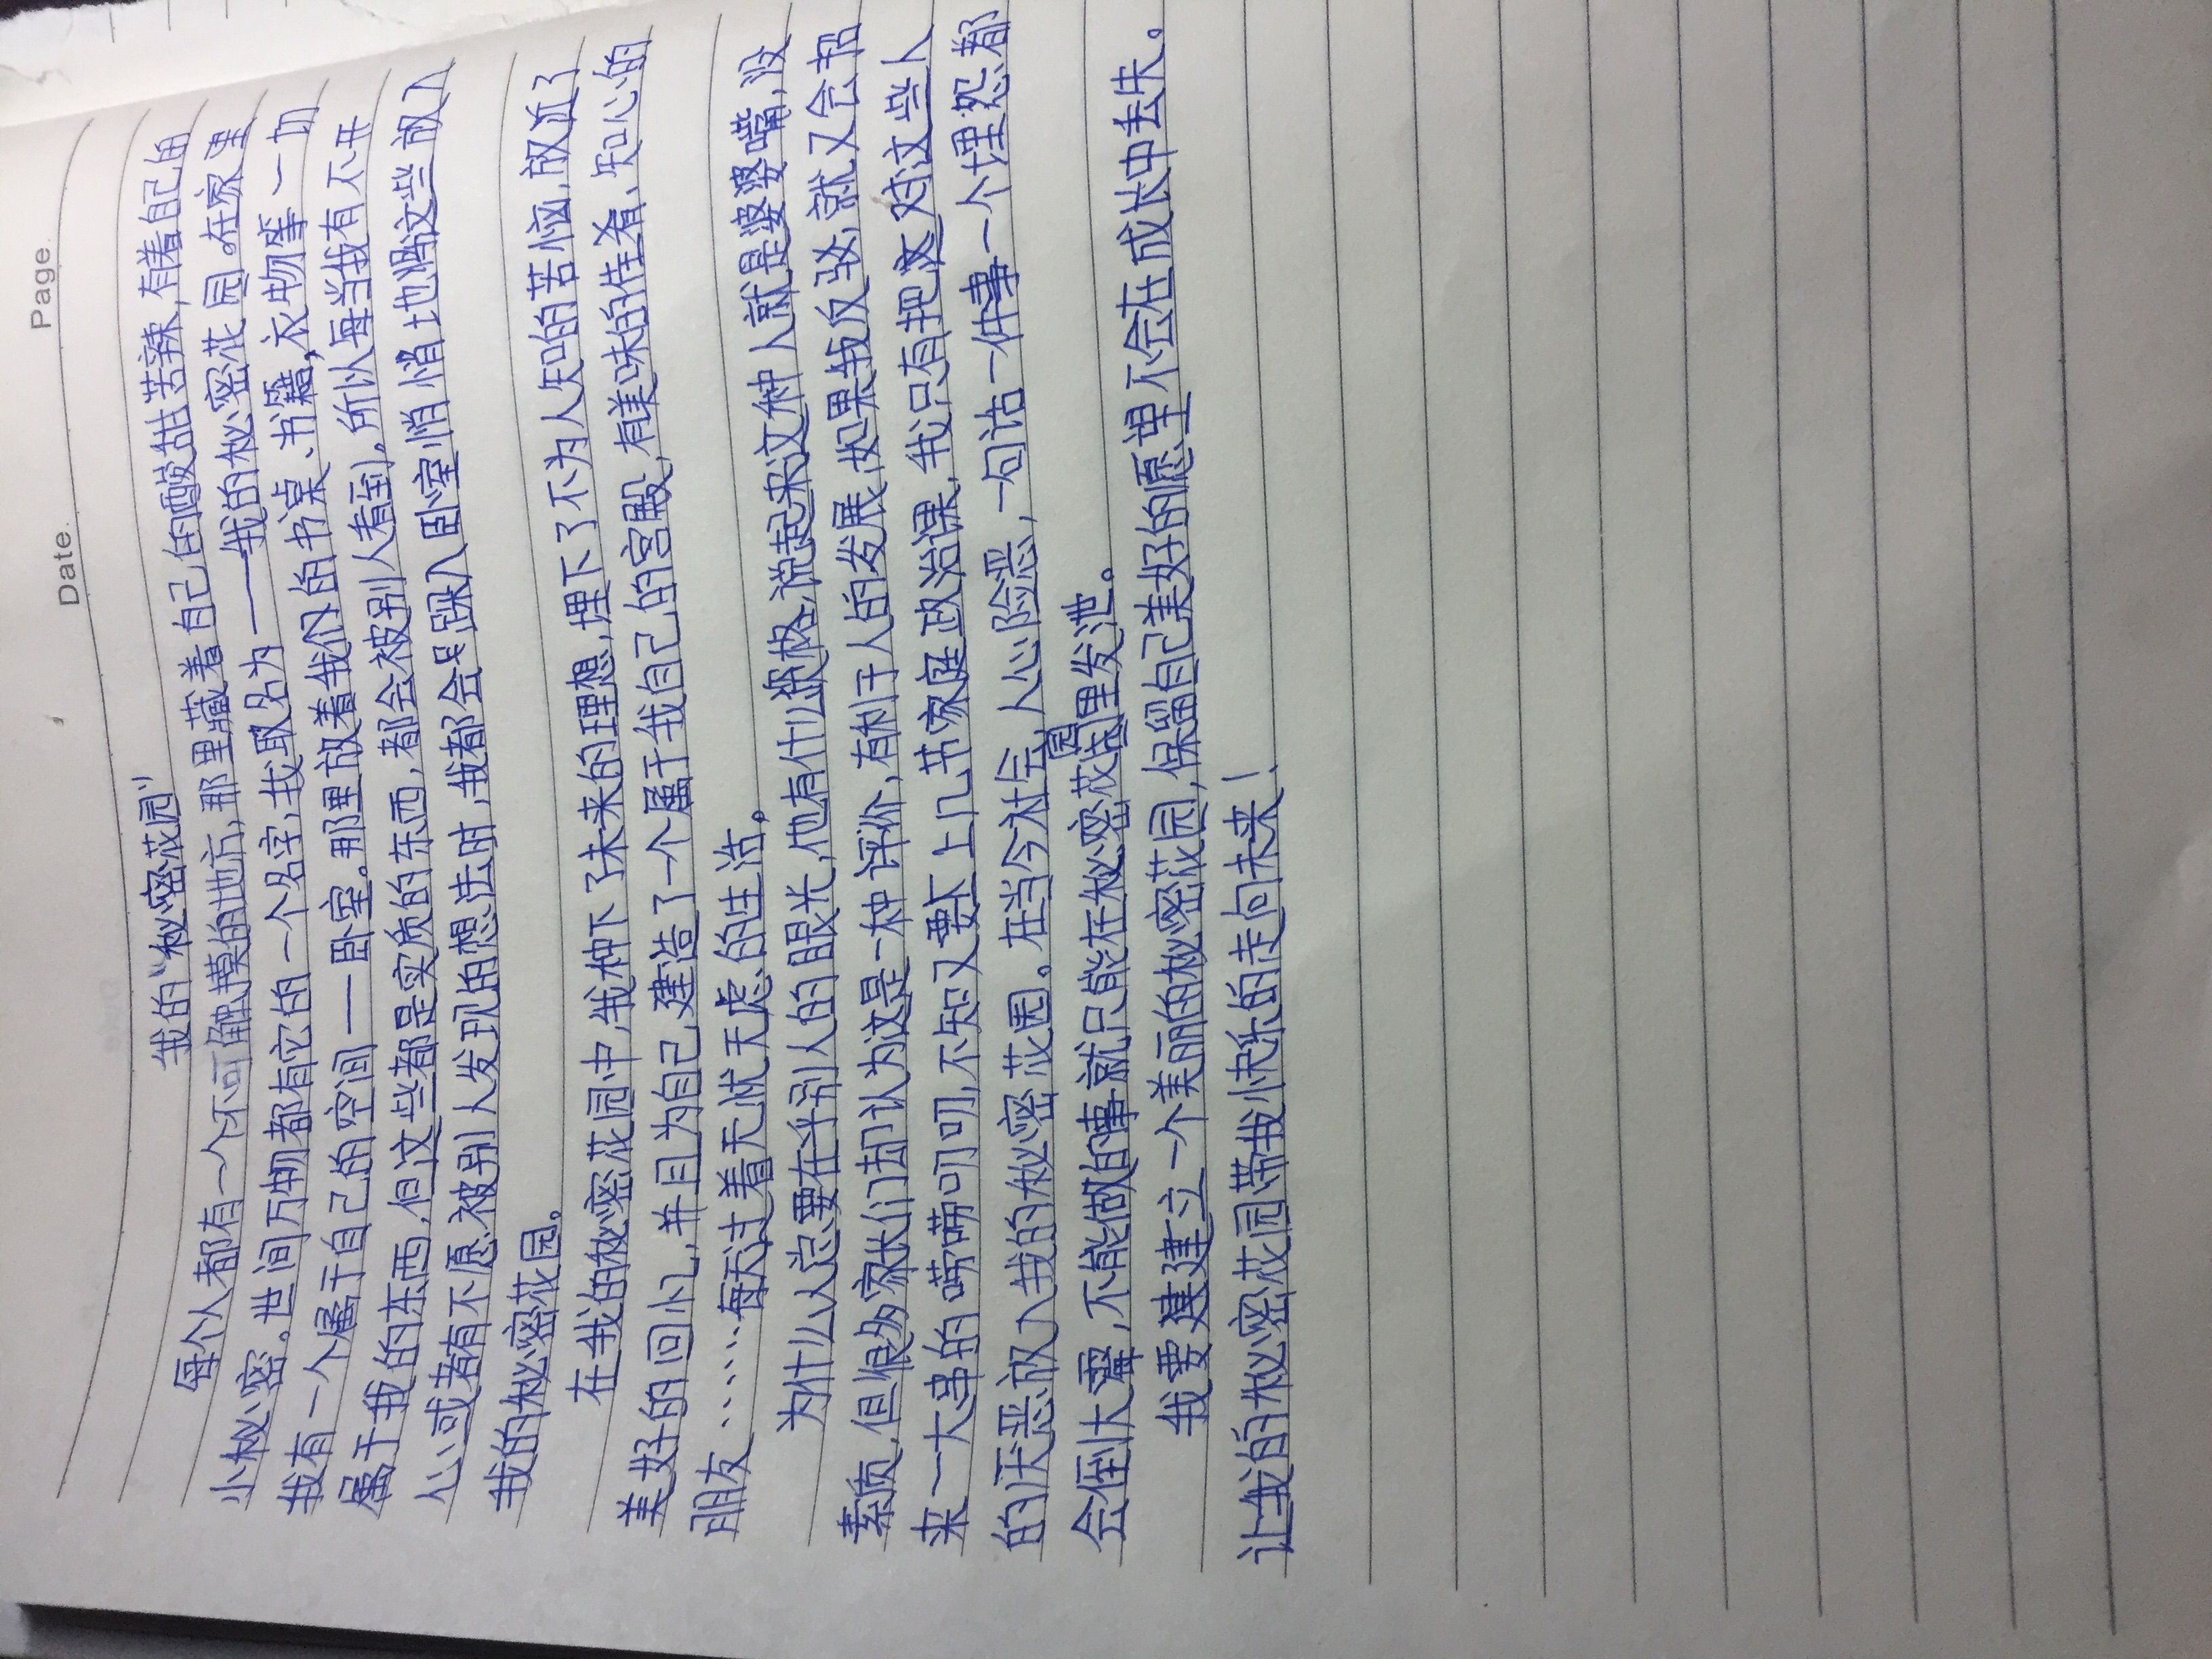 Date. Page.
我的“秘密花园”
每个人都有一个不可触摸的地方,那里藏着自己的酸甜苦辣,有着自己的
小秘密。世间万物都有它的一个名字,我取名为——我的秘密花园。在家里
我有一个属于自己的空间——卧室。那里放着我们的书桌、书籍,衣物等一切
属于我的东西,但这些都是实质的东西,都会被别人看到。所以每当我有不开
心或者有不愿被别人发现的想法时,我都会踩入卧室悄悄地将这些放入
我的秘密花园。
在我的秘密花园中,我种下了未来的理想,埋下了不为人知的苦恼,放进了
美好的回忆,并且为自己建造了一个属于我自己的宫殿,有美味的佳肴、知心的
朋友……每天过着无忧无虑的生活。
为什么人总要在乎别人的眼光,他有什么资格,说起来这种人就是婆婆嘴,没
素质,但很多家长们却认为这是一种评价,有利于人的发展,如果我反驳,就又会招
来一大串的唠唠叨叨,不知又要上几节家庭政治课,我只有把对这些人
的厌恶放入我的秘密花园。在当今社会,人心险恶,一句话一件事一个埋怨都
会倒大霉,不能做的事就只能在秘密花园里发泄。
我要建立一个美丽的秘密花园,保留自己美好的愿望不会在成长中丢失。
让我的秘密花园带我快乐的走向未来!